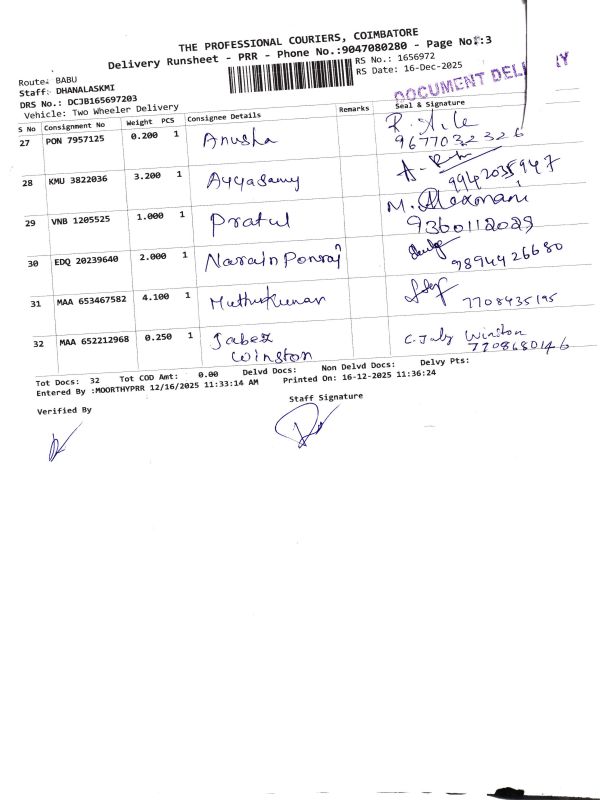 THE PROFESSIONAL COURIERS, COIMBATORE
Delivery Runsheet - PRR - Phone No.:9047080280 - Page No.:3
Route: BABU
Staff: DHANALASKMI
DRS No.: DCJB165697203
Vehicle: Two Wheeler Delivery
RS No.: 1656972
RS Date: 16-Dec-2025
DOCUMENT DELIVERY
S No Consignment No Weight PCS Consignee Details Remarks Seal & Signature
27 PON 7957125 0.200 1 Anusha
9677032326
28 KMU 3822036 3.200 1 Ayyasamy
9942035947
29 VNB 1205525 1.000 1 Pratul M.
9360112029
30 EDQ 20239640 2.000 1 Narain Ponraj
9894426680
31 MAA 653467582 4.100 1 Muthukumar
7708435195
32 MAA 652212968 0.250 1 Jabez Winston C. Winston
7708680146
Tot Docs: 32 Tot COD Amt: 0.00 Delvd Docs: Non Delvd Docs: Delvy Pts:
Entered By :MOORTHYPRR 12/16/2025 11:33:14 AM Printed On: 16-12-2025 11:36:24
Verified By
Staff Signature